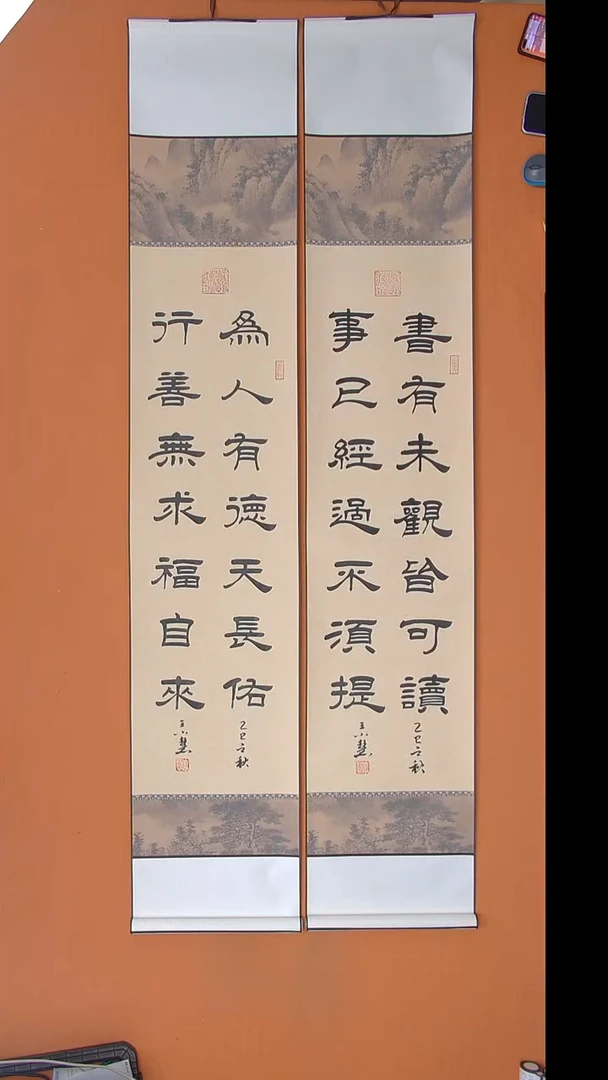 書有未觀皆可讀
事已經過不須提
乙巳之秋
為人有德天長佑
行善無求福自來
乙巳之秋